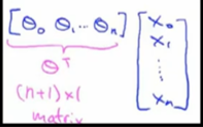 [θ₀ θ₁ ... θₙ] [x₀
x₁
⋮
xₙ]
θᵀ
(n+1) x 1
matrix